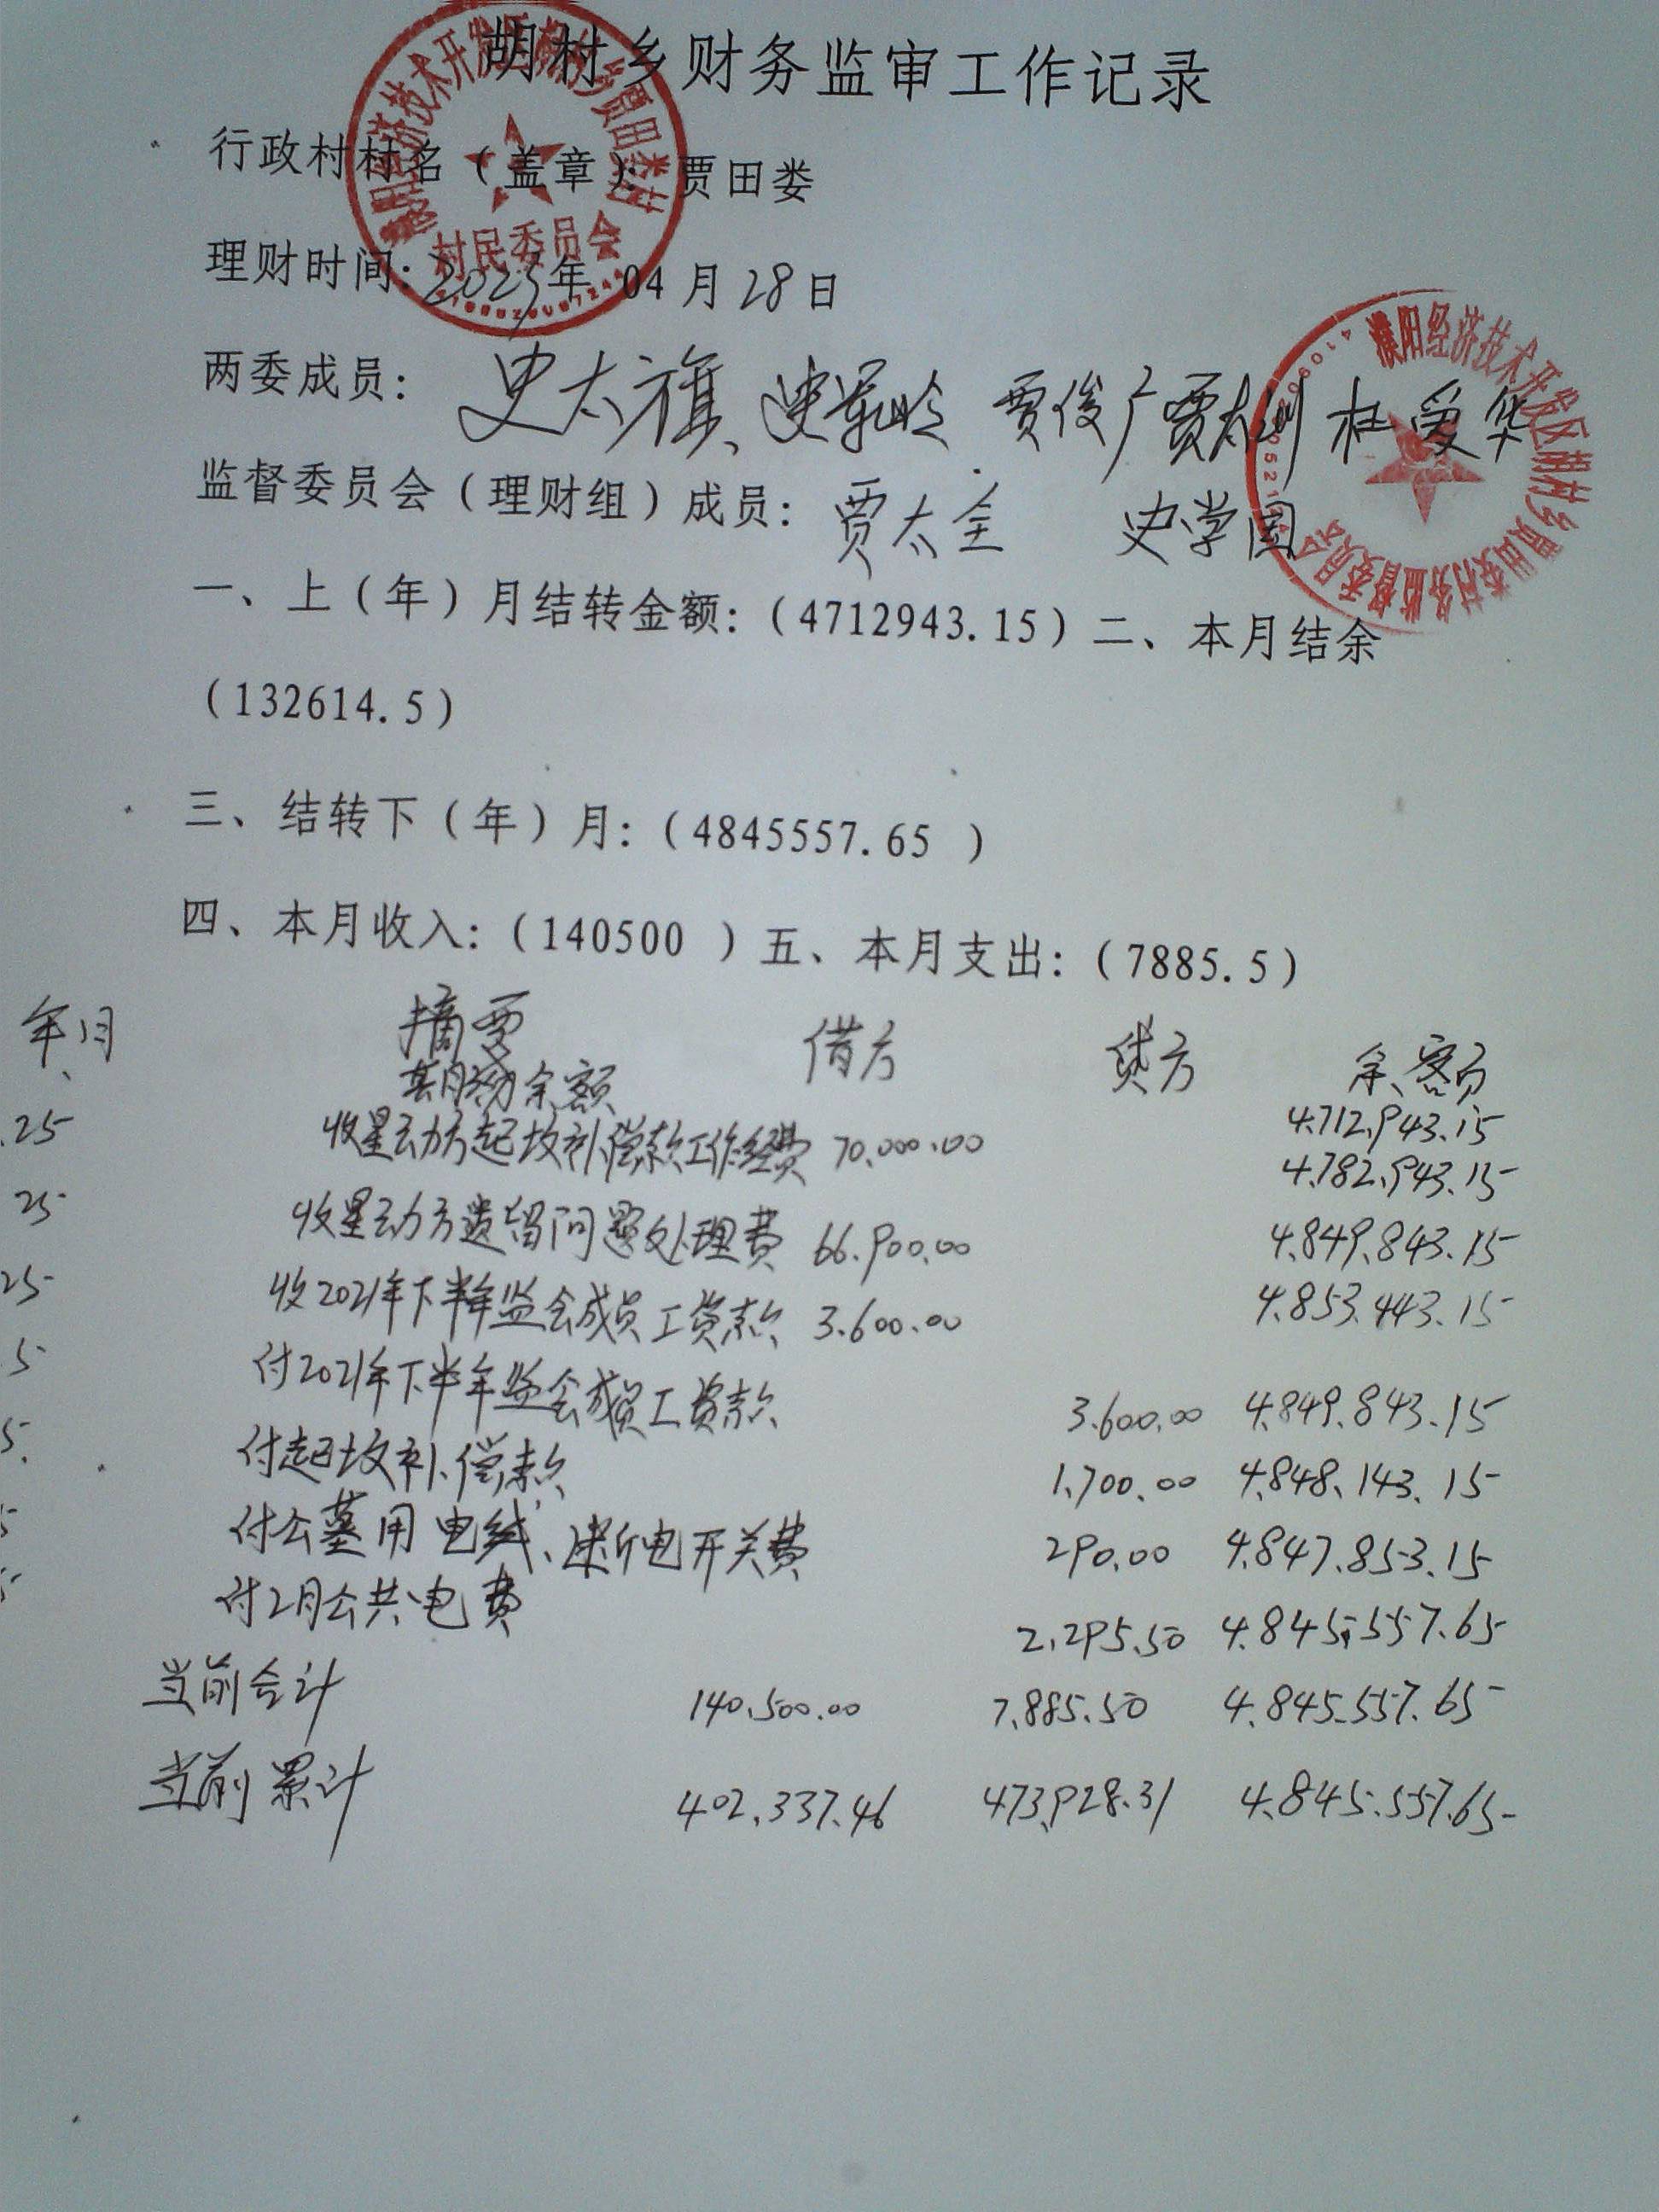 胡村乡财务监审工作记录
行政村村名（盖章）: 贾田娄
理财时间: 2023年 04 月 28 日
两委成员: 史太旗、史军岭 贾俊广 贾太刚 杜爱华
监督委员会（理财组）成员: 贾太全 史学国
一、上（年）月结转金额:（4712943.15）二、本月结余
（132614.5）
三、结转下（年）月:（4845557.65 ）
四、本月收入:（140500 ）五、本月支出:（7885.5）
年月 摘要 借方 贷方 余额
期初余额 4.712.943.15
.25 收星动方起坟补偿款工作经费 70.000.00 4.782.943.15
25 收星动方遗留问题处理费 66.900.00 4.849.843.15
25 收2021年下半年监会成员工资款 3.600.00 4.853.443.15
5 付2021年下半年监会成员工资款 3.600.00 4.849.843.15
5. 付起坟补偿款 1.700.00 4.848.143.15
5 付公墓用电线、断电开关费 290.00 4.847.853.15
5 付2月公共电费 2.295.50 4.845.557.65
当前合计 140.500.00 7.885.50 4.845.557.65
当前累计 402.337.46 473.928.31 4.845.557.65
濮阳经济技术开发区胡村乡贾田娄村
村民委员会
濮阳经济技术开发区胡村乡贾田娄村务监督委员会